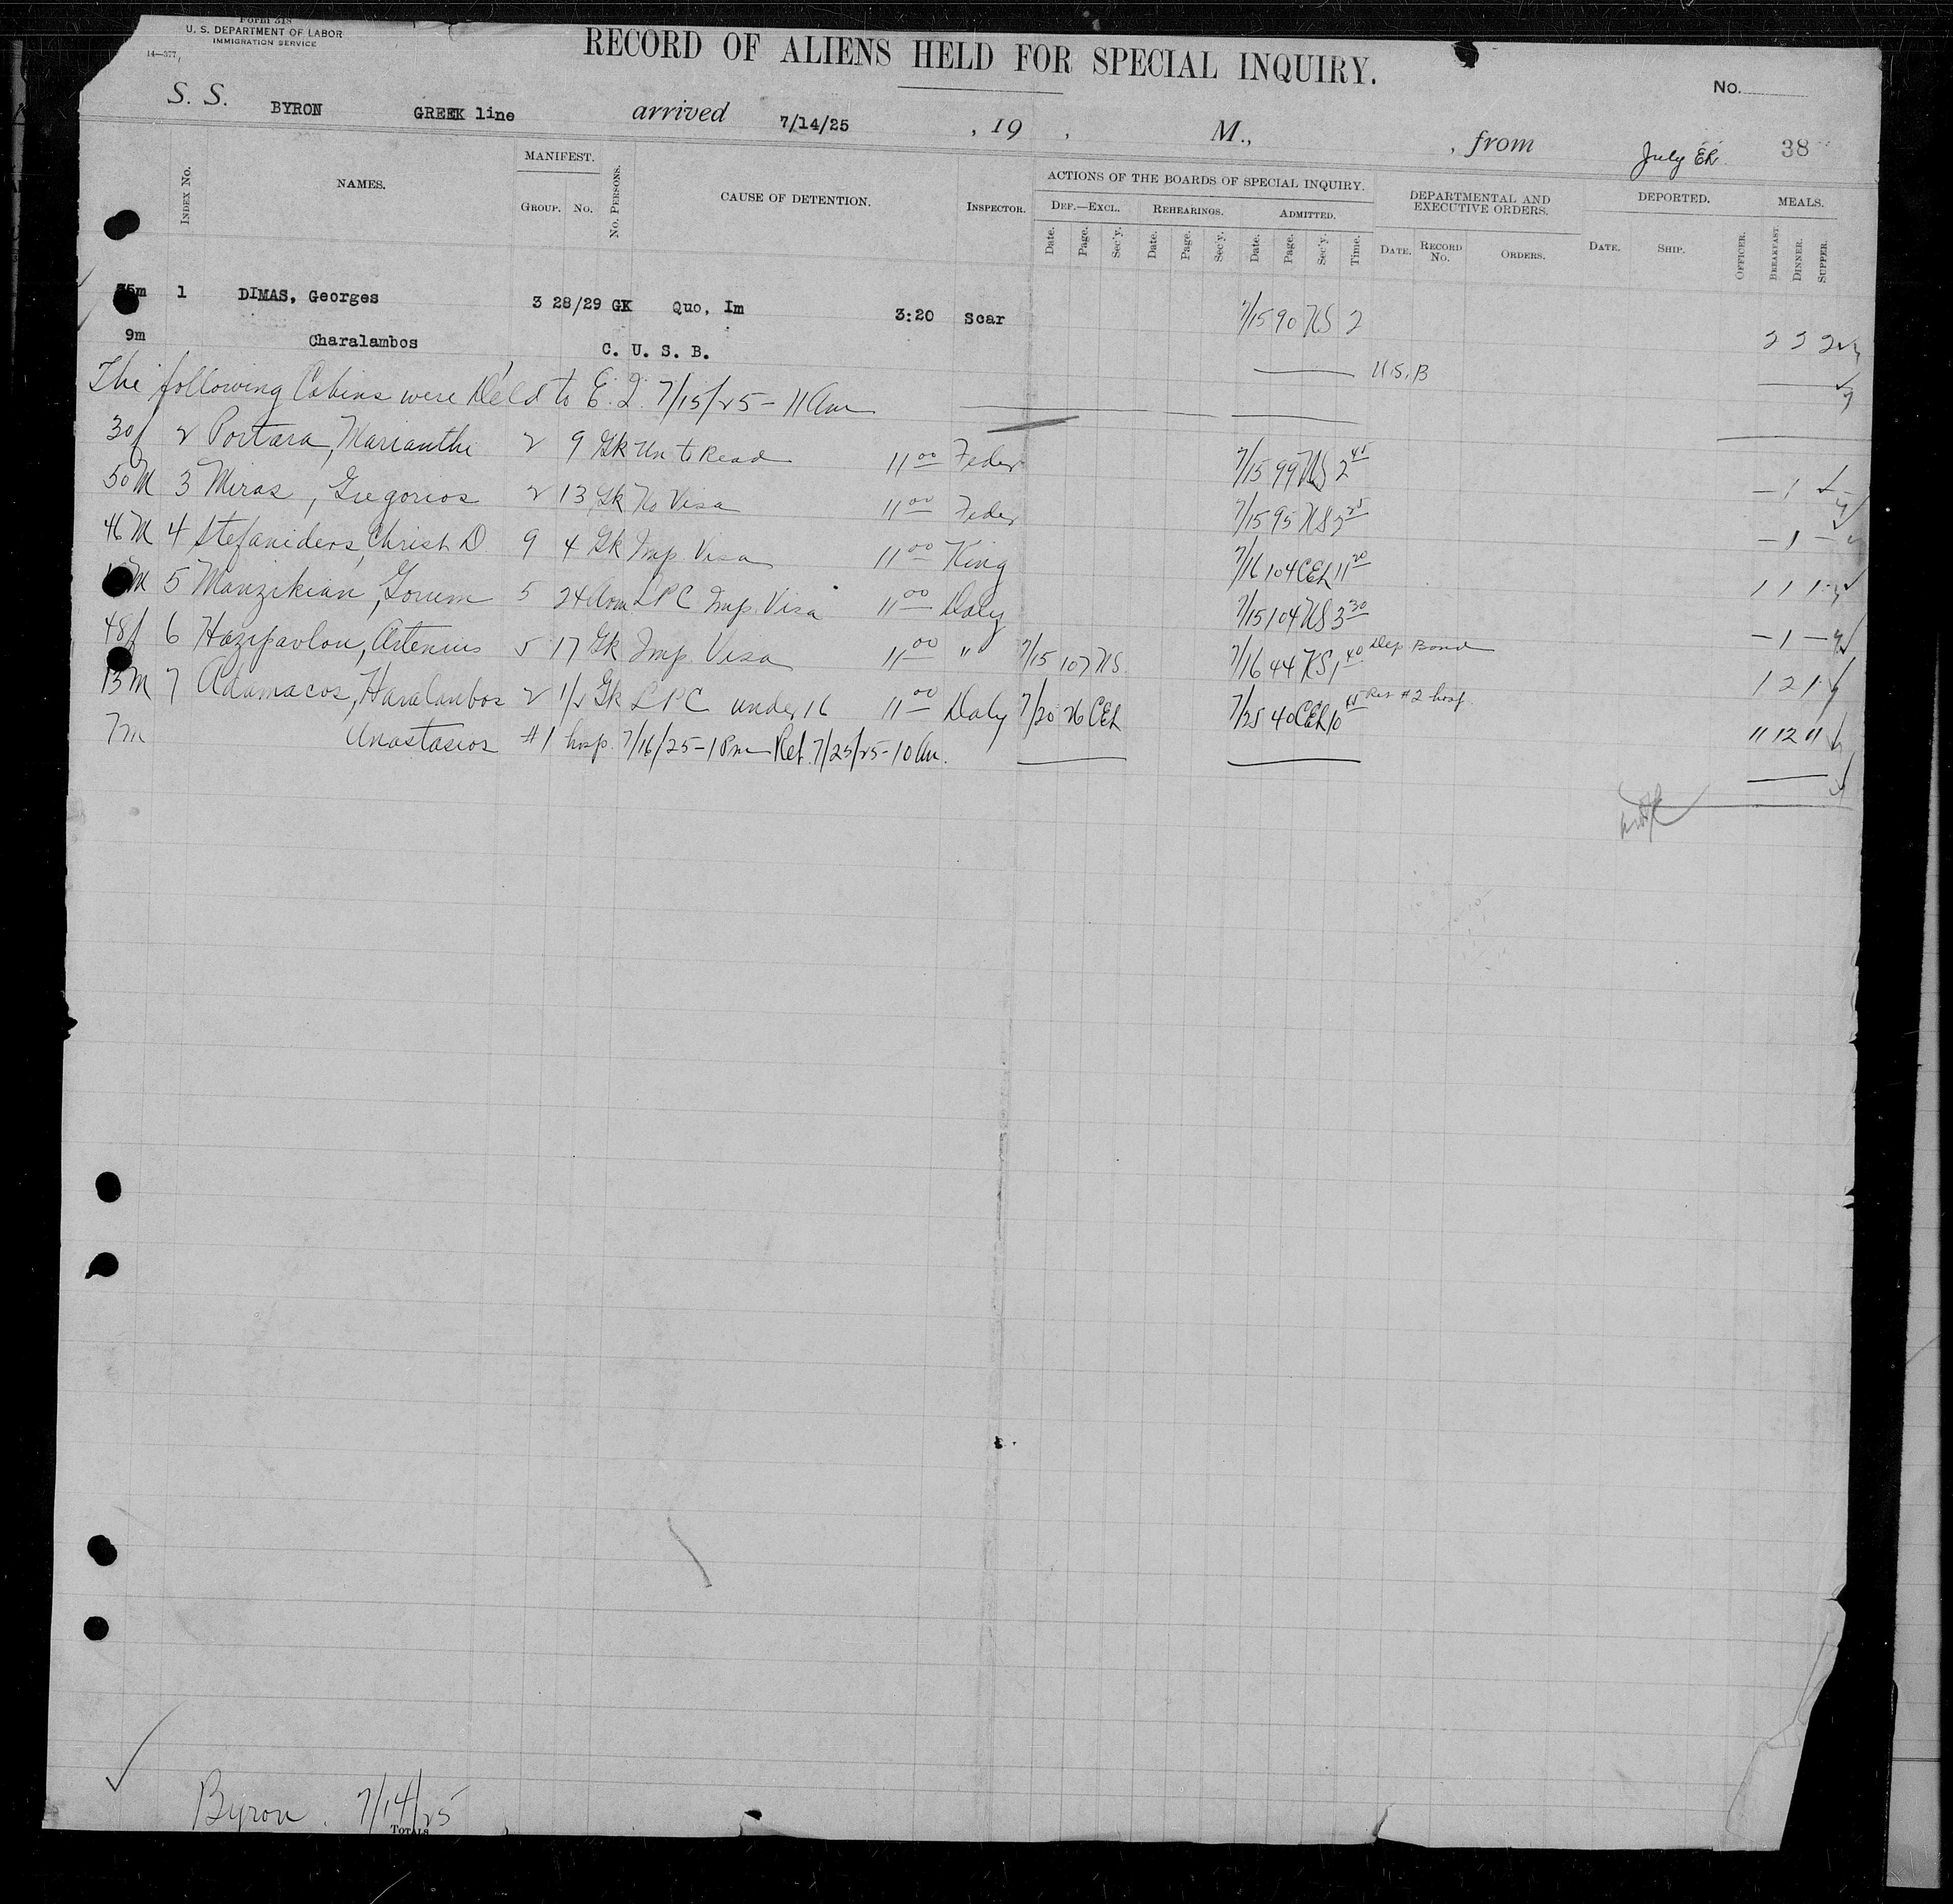 Form 318
U. S. DEPARTMENT OF LABOR
IMMIGRATION SERVICE
14—577
RECORD OF ALIENS HELD FOR SPECIAL INQUIRY.
No.
S. S. BYRON GREEK line arrived 7/14/25 , 19 , M., , from
July 38
INDEX No. NAMES. MANIFEST. GROUP. NO. NO. PERSONS. CAUSE OF DETENTION. INSPECTOR. ACTIONS OF THE BOARDS OF SPECIAL INQUIRY. DEPARTMENTAL AND EXECUTIVE ORDERS. DEPORTED. MEALS.
DEF.—EXCL. REHEARINGS. ADMITTED.
Date. Page. Sec'y. Date. Page. Sec'y. Date. Page. Sec'y. Time. DATE. RECORD No. ORDERS. DATE. SHIP. OFFICER. BREAKFAST. DINNER. SUPPER.
1 DIMAS, Georges 3 28/29 GK Quo, Im 3:20 Scar 7/15 90 NS 2
9m Charalambos C. U. S. B. U.S.B
The following Cabins were Del'd to E. I. 7/15/25 - 11 Am
30f 2 Portara, Marianthe 2 9 Gk Un to Read 11 00 Feder 7/15 99 NS 2 45
50M 3 Miras, Gregorios 2 13 Gk No Visa 11 00 Feder 7/15 95 NS 3 25
46M 4 Stefanideos, Christ D 9 4 Gk Imp. Visa 11 00 King 7/16 104 CEh 11 20
5 Manzikian, 5 24 LPC Imp. Visa 11 00 Daly 7/15 104 NS 3 30
48f 6 Hazipavlou, 5 17 Gk Imp. Visa 11 00 " 7/15 107 NS. 7/16 44 KS 1 40 Dep Bond
13M 7 Adamacos, Haralambos 2 1/2 Gk LPC under 16 11 00 Daly 7/20 26 CEh 7/25 40 CEh 10 45 #2 hosp.
7m Anastasios #1 hosp. 7/16/25 - 1 Pm Ret. 7/25/25 - 10 Am.
Byron. 7/14/25
TOTALS